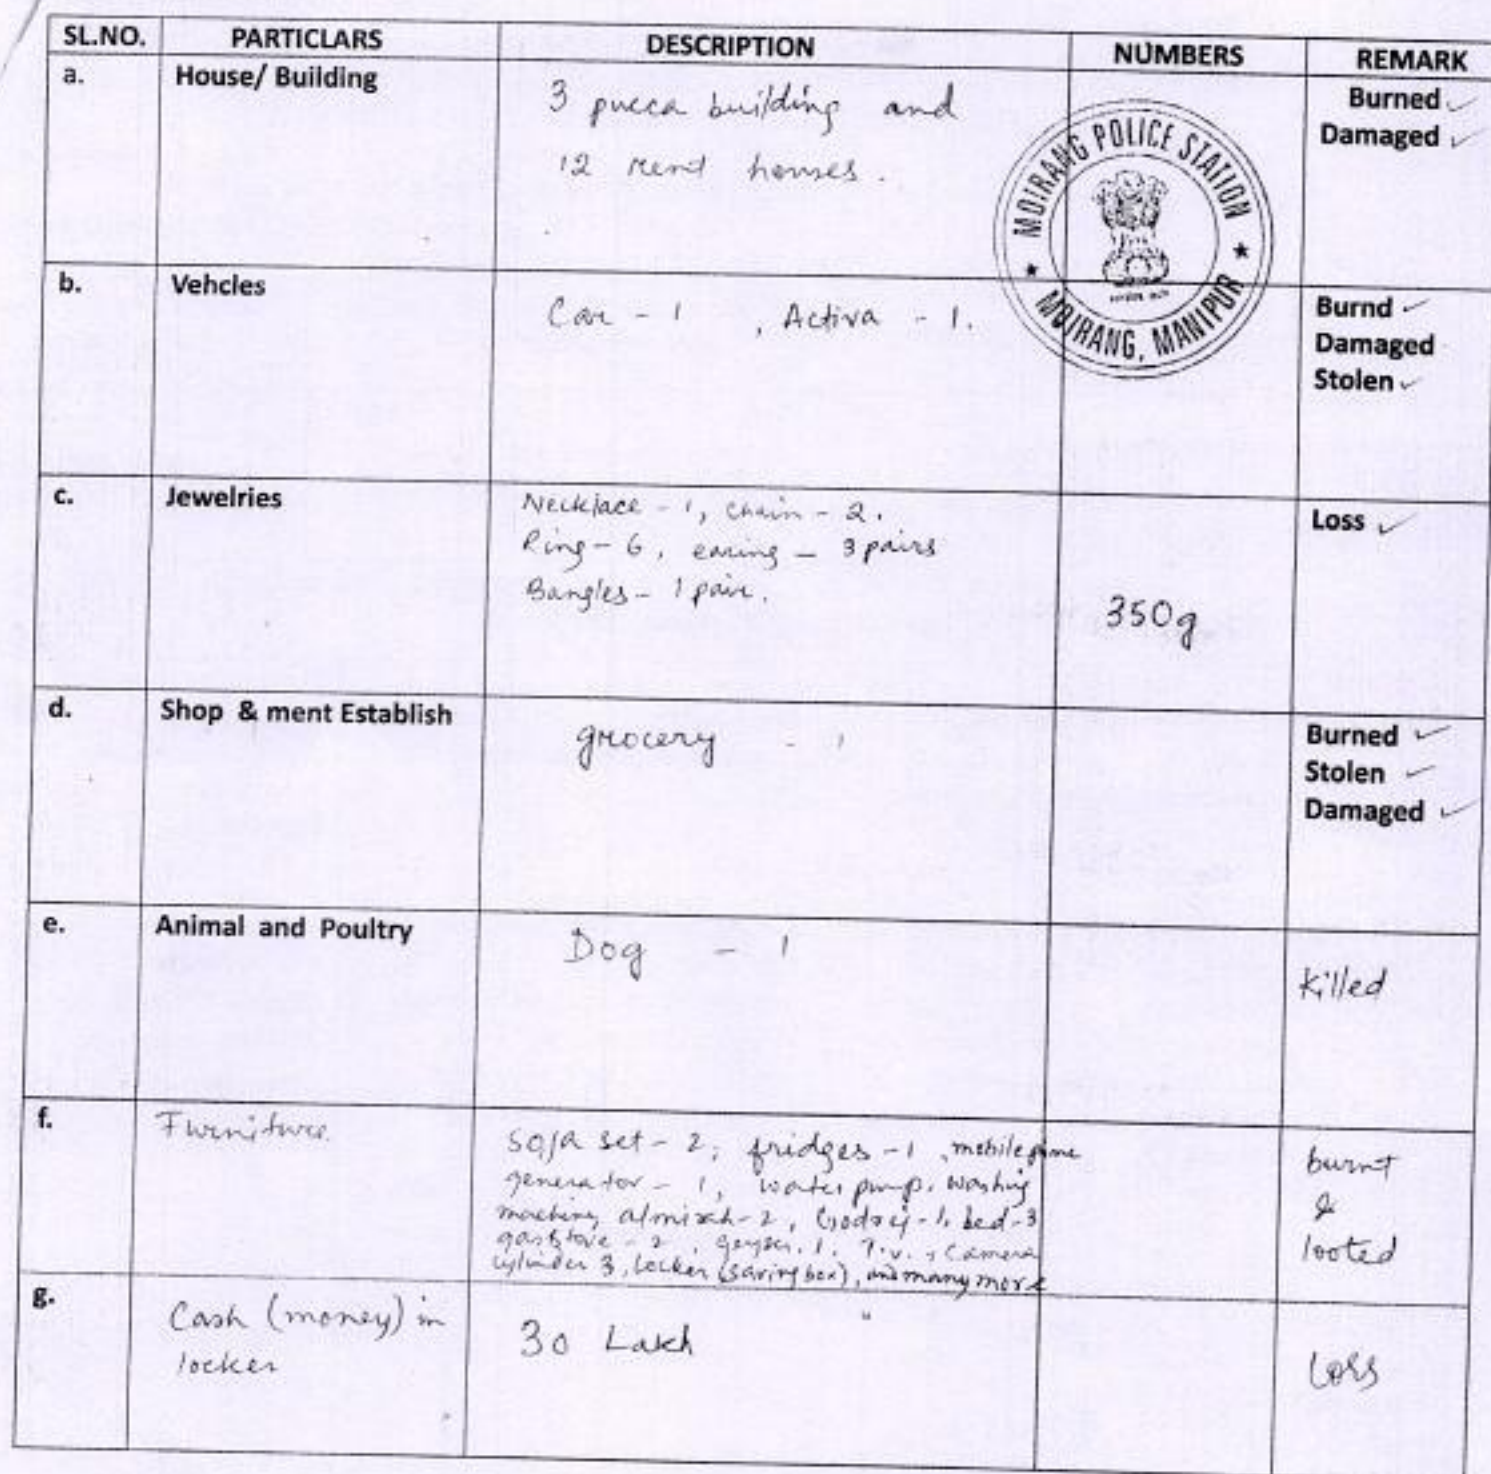 SL.NO. PARTICLARS DESCRIPTION NUMBERS REMARK
a. House/ Building 3 pucca building and Burned ✓
12 rent houses. Damaged ✓
MOIRANG POLICE STATION
★ MOIRANG, MANIPUR ★
b. Vehcles Car - 1 , Activa - 1. Burnd ✓
Damaged
Stolen ✓
c. Jewelries Necklace - 1, chain - 2. Loss ✓
Ring - 6, earing - 3 pairs
Bangles - 1 pair. 350g
d. Shop & ment Establish grocery - 1 Burned ✓
Stolen ✓
Damaged ✓
e. Animal and Poultry Dog - 1 Killed
f. Furniture sofa set - 2, fridges - 1, mobile burnt
generator - 1, water pump, washing &
machine, almirah - 2, Godrej - 1, bed - 3 looted
gas stove - 2, geyser. 1. T.V., Camera
cylinder 3, Locker (saving box), and many more
g. Cash (money) in locker 30 Lakh " Loss